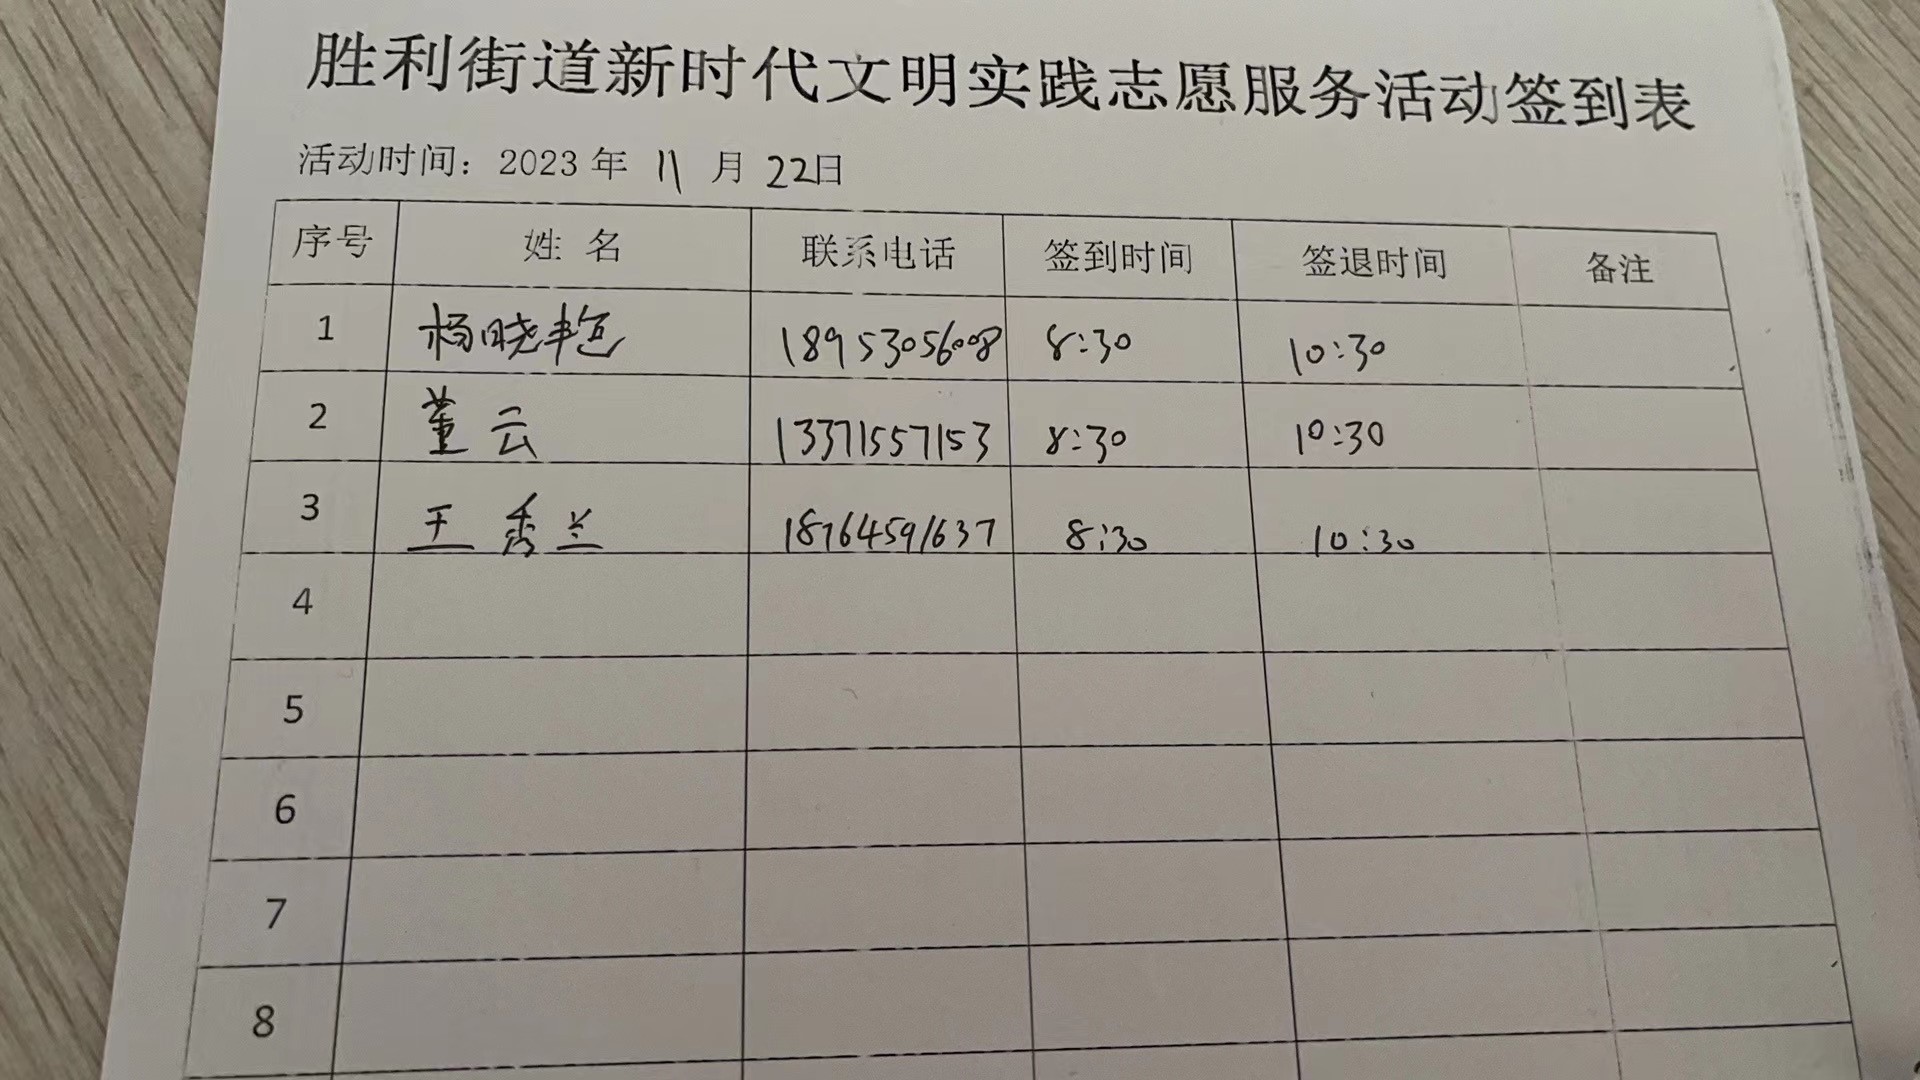 胜利街道新时代文明实践志愿服务活动签到表
活动时间：2023年 11 月 22日
序号 姓 名 联系电话 签到时间 签退时间 备注
1 杨晓艳 18953056008 8:30 10:30
2 董云 13371557153 8:30 10:30
3 王秀兰 18764591637 8:30 10:30
4
5
6
7
8